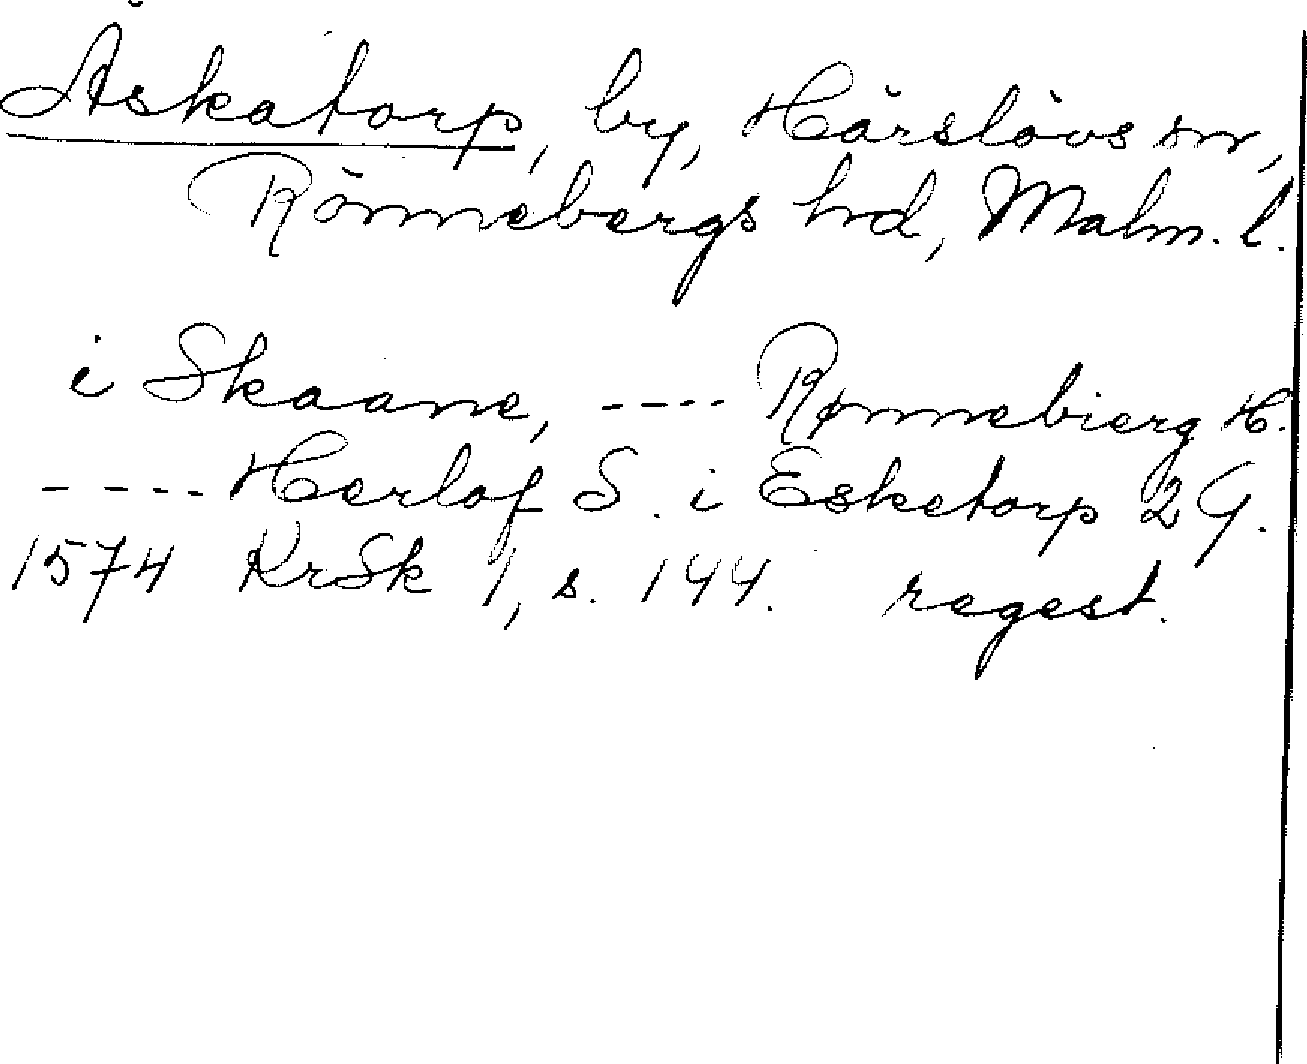 Äskatorp, by, Härslövs sn,
Rönnebergs hd, Malm. l.
i Skaane, ---- Rønnebierg H.
---- Herlof S. i Esketorp 2 G.
1574 KrSk 1, s. 144. regest.